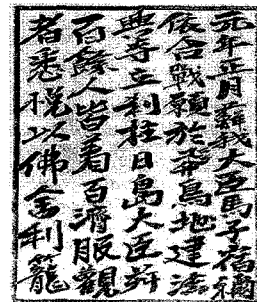 元年正月蘇我大臣馬子宿禰
依合戰願於飛鳥地建法
興寺立刹柱日島大臣并
百餘人皆着百濟服觀
者悉悅以佛舍利籠